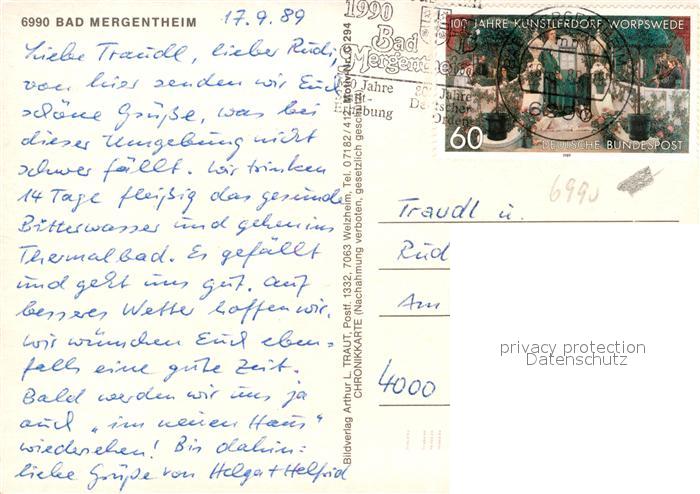 6990 BAD MERGENTHEIM 17.9.89
Liebe Traudl, lieber Rudi,
von hier senden wir Euch
schöne Grüße, was bei
dieser Umgebung nicht
schwer fällt. Wir trinken
14 Tage fleißig das gesunde
Bitterwasser und gehen ins
Thermalbad. Es gefällt
und geht uns gut. Auf
besseres Wetter hoffen wir.
Wir wünschen Euch eben=
falls eine gute Zeit.
Bald werden wir uns ja
auch "im neuen Haus"
wiedersehen! Bis dahin:
liebe Grüße von Helga + Helfrid
Bildverlag Arthur L. TRAUT, Postf. 1332, 7063 Welzheim, Tel. 07182/412, Motiv-Nr. C 294
CHRONIKKARTE (Nachahmung verboten, gesetzlich geschützt)
1990
Bad
Mergent
Jahre
Jahre
Deutscher
Orden
100 JAHRE KÜNSTLERDORF WORPSWEDE
60
DEUTSCHE BUNDESPOST
1989
6990
Traudl u.
Rud
Am
4000
privacy protection
Datenschutz